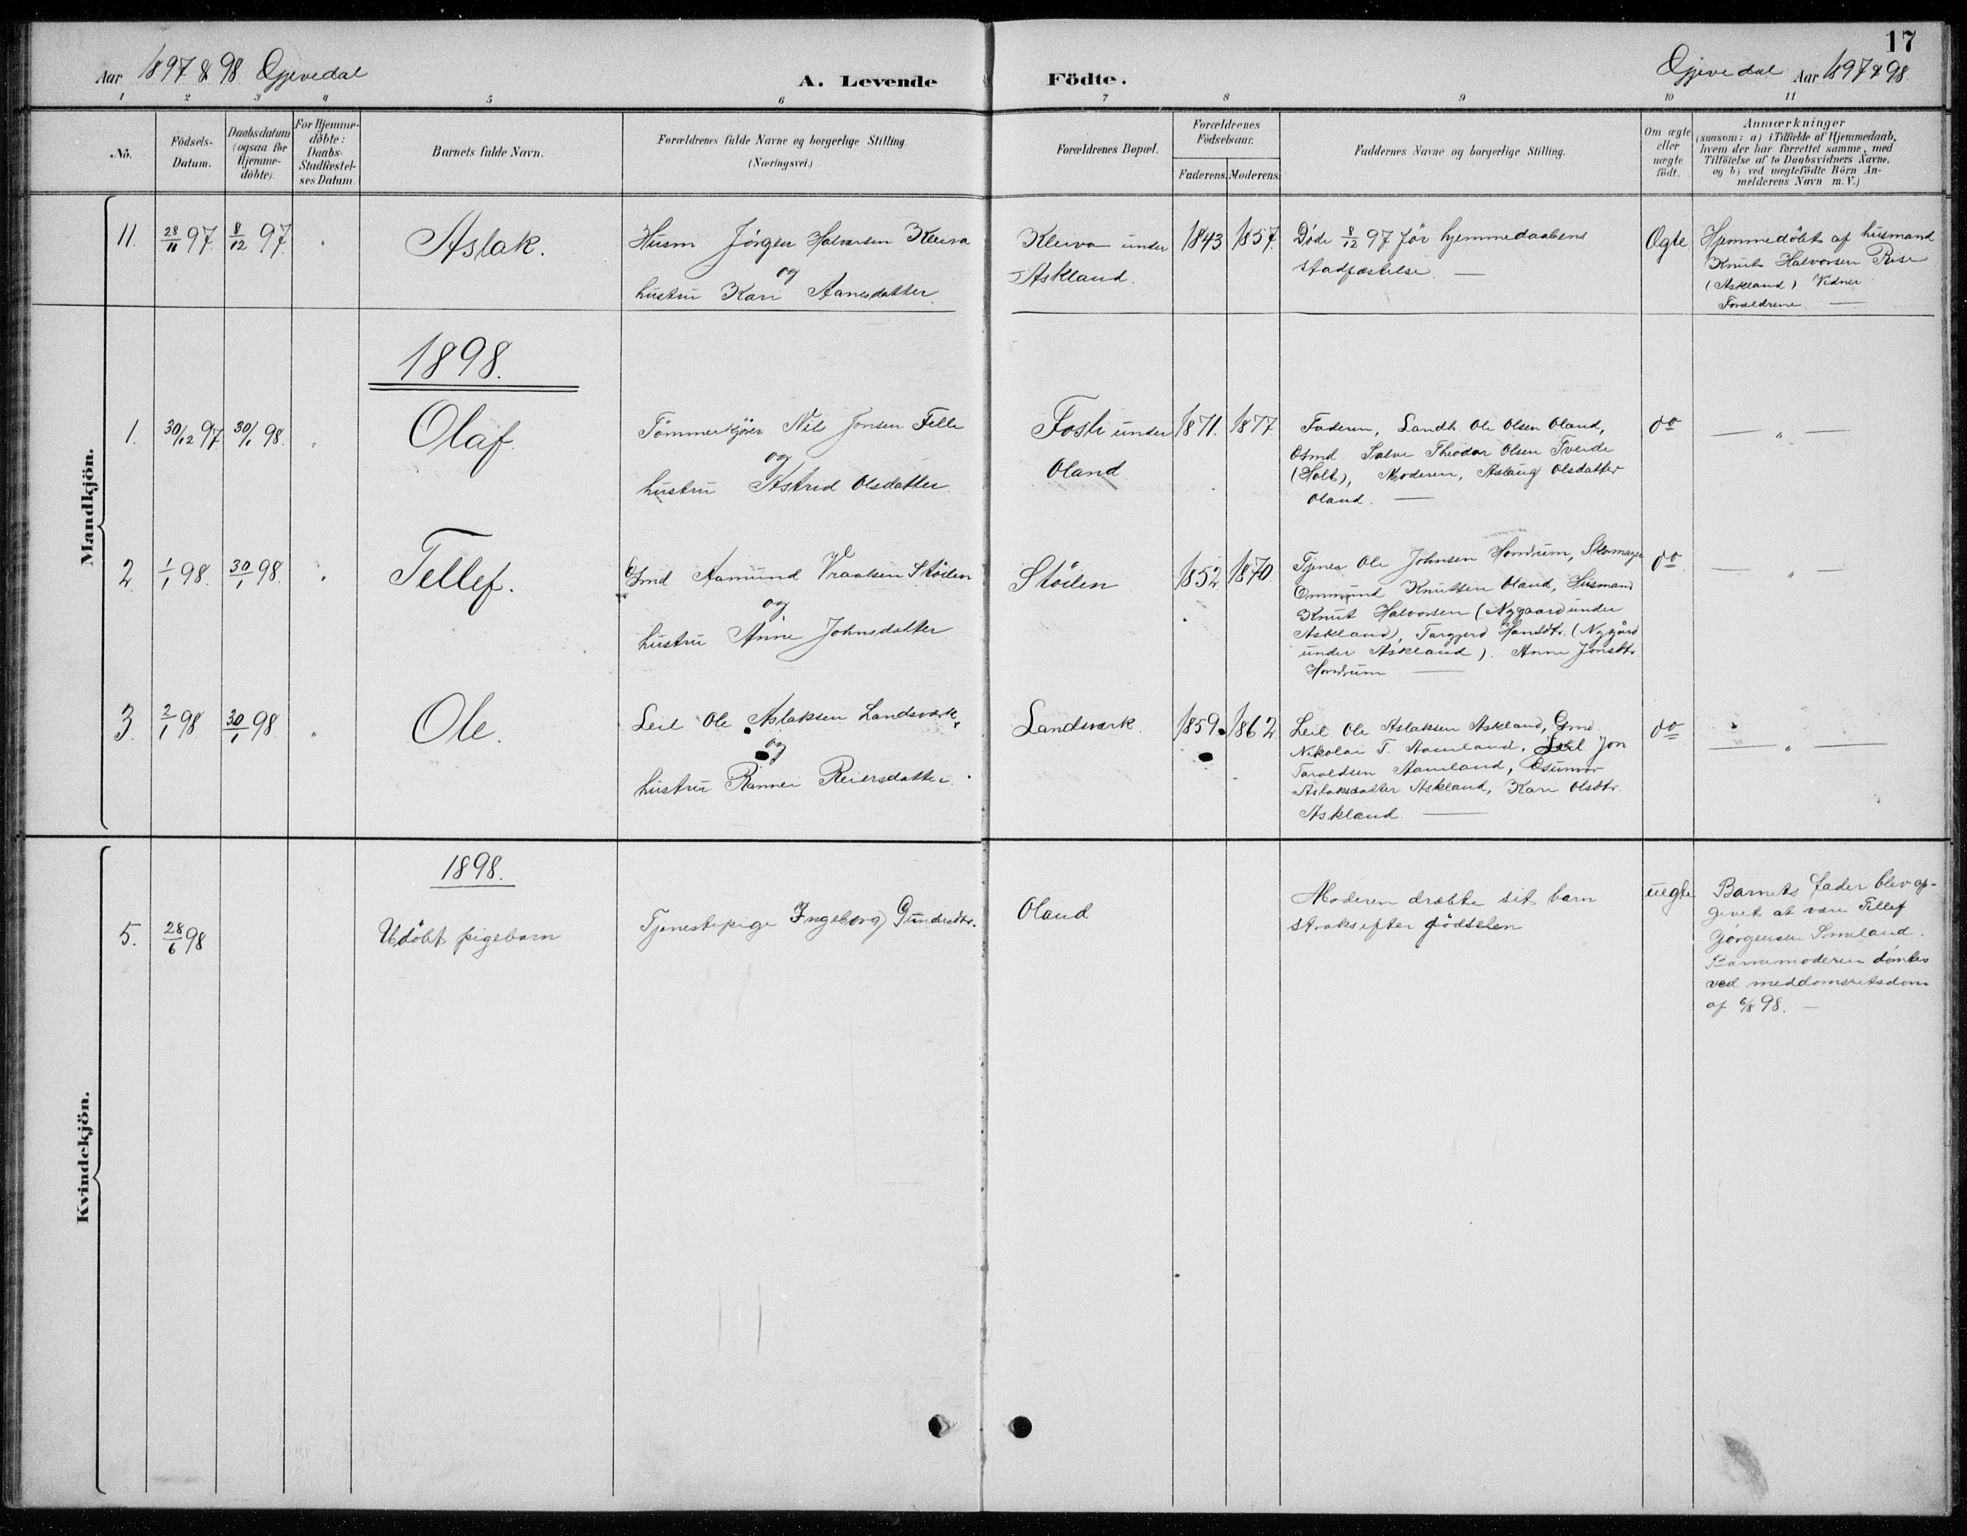 17
Aar 1897 & 98 Gjevedal
A. Levende Födte.
Gjevedal Aar 1897 & 98.
1 2 3 4 5 6 7 8 9 10 11
No.
Födsels-
Datum.
Daabsdatum
(ogsaa for
Hjemme-
döbte).
For Hjemme-
döbte:
Daabs-
Stadfæstel-
ses Datum.
Barnets fulde Navn.
Forældrenes fulde Navne og borgerlige Stilling.
(Næringsvei.)
Forældrenes Bopæl.
Forældrenes
Födselsaar.
Faderens. Moderens.
Faddernes Navne og borgerlige Stilling.
Om ægte
eller
uægte
födt.
Anmærkninger
(saasom: a) i Tilfælde af Hjemmedaab,
hvem der har forrettet samme, med
Tilföielse af to Daabsvidners Navne,
og b) ved uægtefödte Börn An-
melderens Navn m. V.)
Mandkjön.
11. 28/11 97. 8/12 97. Aslak.
Husm Jörgen Halvorsen Kleiva
og
hustru Kari Aanesdatter
Kleiva under
Askland.
1843 1857.
Döde 8/12 97 för hjemmedaabens
stadfæstelse. —
Ægte
Hjemmedöbt af husmand
Knut Halvorsen Rise
(Askland) Vidner
Forældrene —
1898.
1. 30/12 97 30/1 98. Olaf.
Tömmerkjörer Nils Jonsen Felle
og
hustru Astrid Olsdatter.
under
Oland.
1871. 1877
Faderen, Landh. Ole Olsen Oland,
Gsmd. Salve Theodor Olsen Tveide
(Holt), Moderen, Aslaug Olsdatter
Oland. —
do
— „ —
2. 1/1 98. 30/1 98. Tellef.
Gmd Aamund Vraalsen Stöilen
og
hustru Anne Johnsdatter
Stöilen
1852. 1870
Tjener Ole Johnsen Homdrum, Skomager
Ommund Knutsen Oland, Husmand
Knut Halvorsen (Nygaard under
Askland), Targjerd (Nygård
under Askland). Anne Jonsdtr.
Homdrum —
do
— „ —
3. 2/1 98 30/1 98 Ole.
Leil Ole Aslaksen Landsverk,
og
hustru Rannei Reiersdatter.
Landsverk.
1859. 1862
Leil. Ole Aslaksen Askland, Gmd.
Nikolai T. Aamland, Leil Jon
Taraldsen Aamland, Gunvor
Aslaksdatter Askland, Kari Olsdtr.
Askland. —
do
— „ —
Kvindekjön.
1898.
5. 28/6 98 Udöbt pigebarn
Tjenestepige Ingeborg Gundersdtr.
Oland
Moderen dræbte sit barn
straks efter födselen
uegte
Barnets fader blev op-
givet at være Tellef
Jörgensen Smeland.
Barnemoderen dömtes
ved meddomsretsdom
af 6/8 98. —